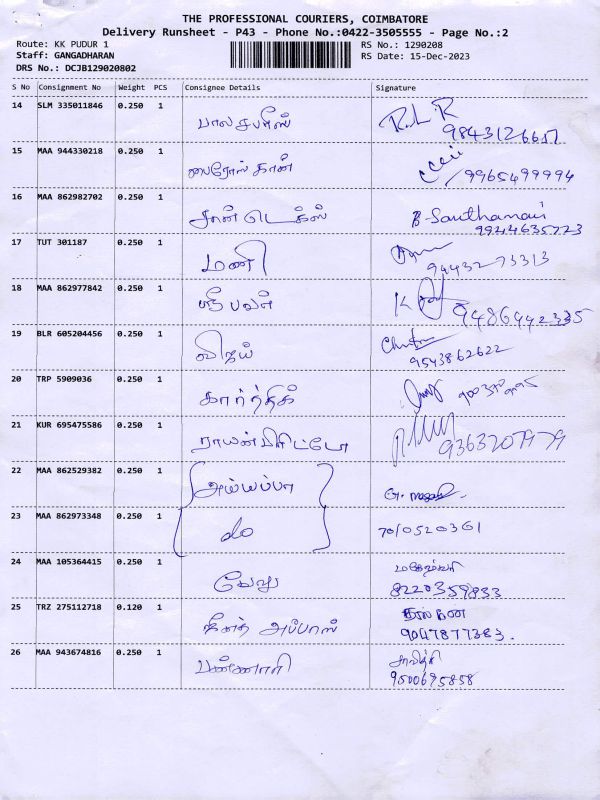 THE PROFESSIONAL COURIERS, COIMBATORE
Delivery Runsheet - P43 - Phone No.:0422-3505555 - Page No.:2
Route: KK PUDUR 1 RS No.: 1290208
Staff: GANGADHARAN RS Date: 15-Dec-2023
DRS No.: DCJB129020802
S No Consignment No Weight PCS Consignee Details Signature
14 SLM 335011846 0.250 1
9843126657
15 MAA 944330218 0.250 1 பைரோஸ் கான்
9965499994
16 MAA 862982702 0.250 1 சான் டெக்ஸ்
9944635723
17 TUT 301187 0.250 1 மணி
94432 73313
18 MAA 862977842 0.250 1 ஸ்ரீ பவன்
9486442335
19 BLR 605204456 0.250 1 விஜய்
9543862622
20 TRP 5909036 0.250 1 கார்த்திக்
21 KUR 695475586 0.250 1
9363207979
22 MAA 862529382 0.250 1 அய்யப்பா
23 MAA 862973348 0.250 1 do
7010520361
24 MAA 105364415 0.250 1 வேலு மகேஸ்வரி
8220359833
25 TRZ 275112718 0.120 1 அப்பாஸ்
9047877383.
26 MAA 943674816 0.250 1 பண்ணாரி சாவித்ரி
9500695858